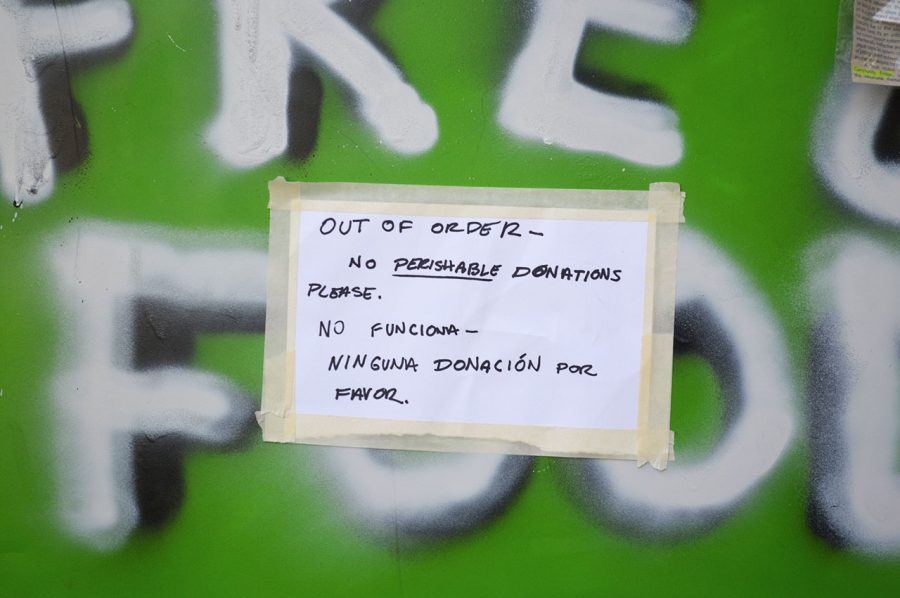 FREE
FOOD
OUT OF ORDER-
NO PERISHABLE DONATIONS
PLEASE.
NO FUNCIONA-
NINGUNA DONACIÓN POR
FAVOR.